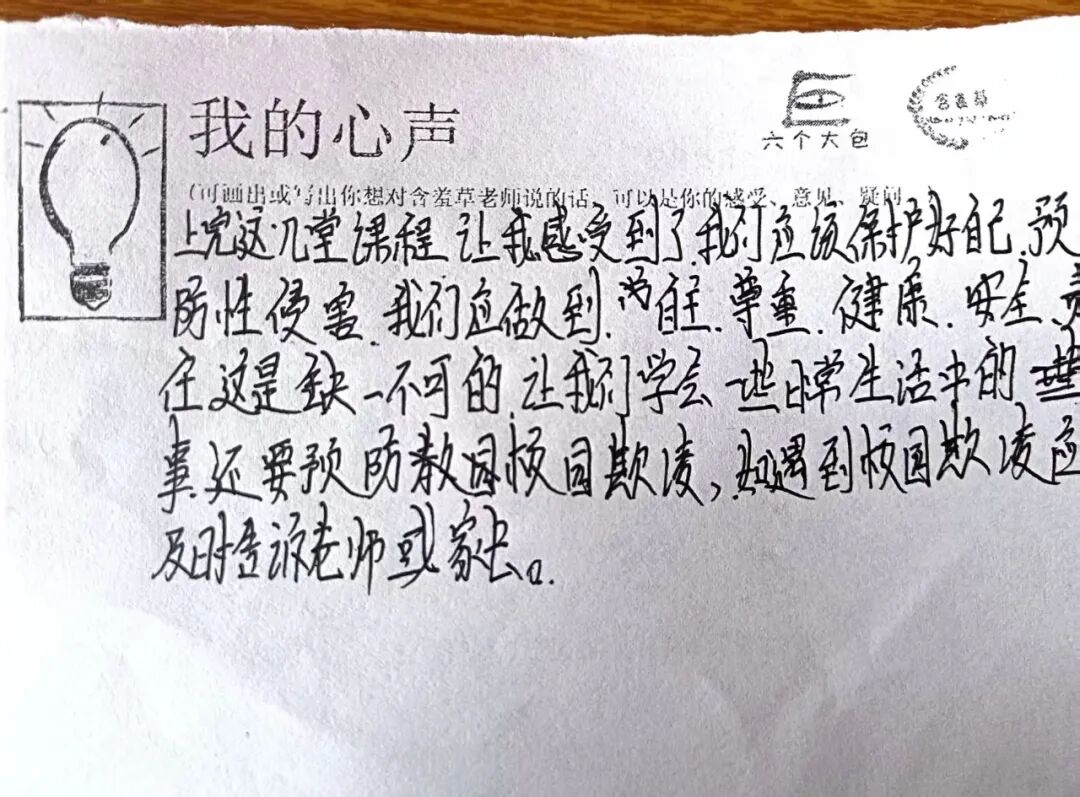 我的心声
六个大包
含羞草
(可画出或写出你想对含羞草老师说的话、可以是你的感受、意见、疑问
上完这几堂课程 让我感受到了.我们应该保护好自己.预
防性侵害.我们应做到.为自主.尊重.健康.安全 责
任 这是缺一不可的.让我们学会 一些日常生活中的
事.还要预防校园欺凌,如遇到校园欺凌应
及时告诉老师或家长。